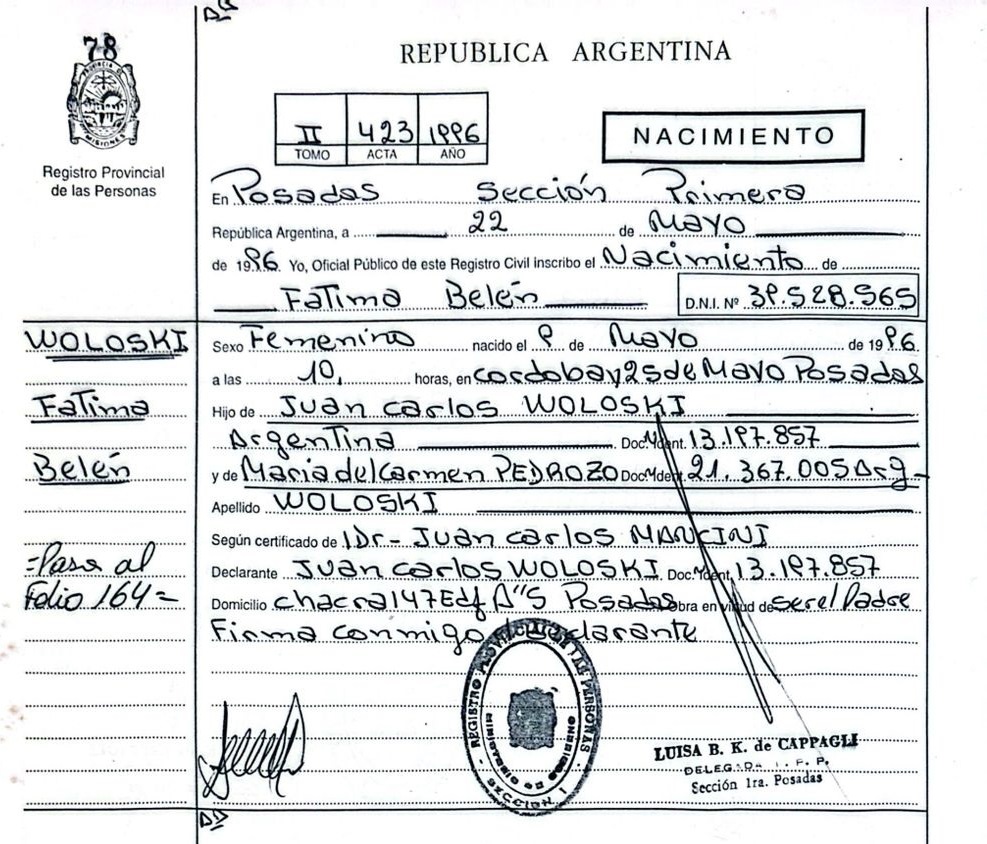 78
REPUBLICA ARGENTINA
PROVINCIA DE MISIONES
Registro Provincial
de las Personas
II 423 1996
TOMO ACTA AÑO
NACIMIENTO
En Posadas Sección Primera
República Argentina, a 22 de Mayo
de 1996. Yo, Oficial Público de este Registro Civil inscribo el Nacimiento de
Fatima Belén D.N.I. Nº 39.528.565
WOLOSKI
Fatima
Belén
=Pasa al
Folio 164=
Sexo Femenino nacido el 9 de Mayo de 1996.
a las 10, horas, en cordoba y 25 de Mayo Posadas
Hijo de Juan carlos WOLOSKI
Argentina Doc. Ident. 13.197.857
y de Maria del Carmen PEDROZO Doc. Ident. 21.367.005 Arg-
Apellido WOLOSKI
Según certificado de Dr- Juan carlos MANCINI
Declarante Juan carlos WOLOSKI. Doc. Ident. 13.197.857
Domicilio chacra 147 Edf A"5 Posadas Obra en virtud de ser el Padre
Firma conmigo declarante
REGISTRO PROVINCIAL DE LAS PERSONAS
SECCION I
LUISA B. K. de CAPPAGLI
DELEGADA
Sección 1ra. Posadas